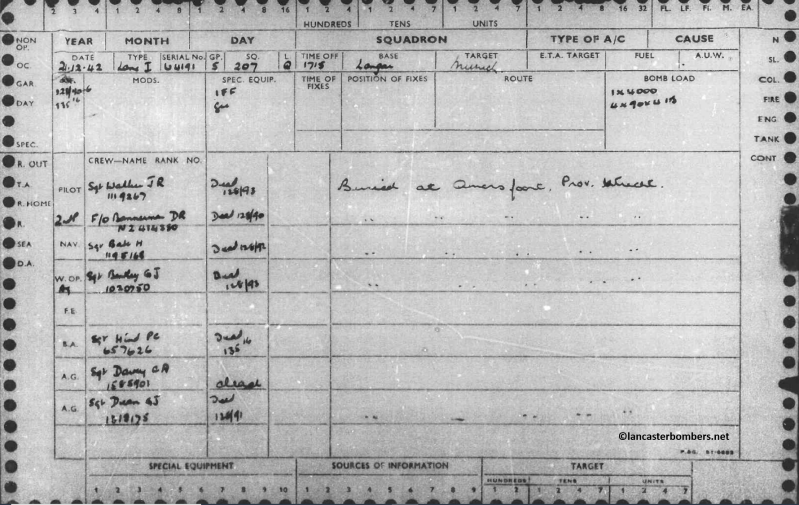 1 2 4 7 1 2 4 7 1 2 4 8 16 32 FL. LF. FI. M. EA.
HUNDREDS TENS UNITS
NON OP. YEAR MONTH DAY SQUADRON TYPE OF A/C CAUSE N
OC. DATE TYPE SERIAL No. GP. SQ. L. TIME OFF BASE TARGET E.T.A. TARGET FUEL A.U.W. SL.
21.12.42 Lanc I W4191 5 207 Q 1715 Langar Munich
GAR. MODS. SPEC. EQUIP. TIME OF FIXES POSITION OF FIXES ROUTE BOMB LOAD COL.
IFF 1 x 4000
DAY 135/16 Gee 4 x 90 x 4 IB FIRE
ENG
SPEC. TANK
R. OUT CREW—NAME RANK NO. CONT
T.A. PILOT Sgt Walker J R Dead Buried at Amersfoort, Prov. Utrecht.
1119267 128/93
R. HOME 2nd P F/O Bannerman DR Dead 128/90 " " " "
R. NZ 414230
SEA NAV. Sgt Bate H Dead 128/92 " " " "
1195168
D.A. W. OP. Sgt Bentley G J Dead " " " "
1020750 128/93
F.E.
B.A. Sgt Hind PC Dead
657626 135/16
A.G. Sgt Davey
1585901
A.G. Sgt Dean GJ Dead " " " "
1318175 128/91
©lancasterbombers.net
SPECIAL EQUIPMENT SOURCES OF INFORMATION TARGET
HUNDREDS TENS UNITS
1 2 3 4 5 6 7 8 9 10 1 2 3 4 5 6 7 8 9 1 2 1 2 4 7 1 2 4 7